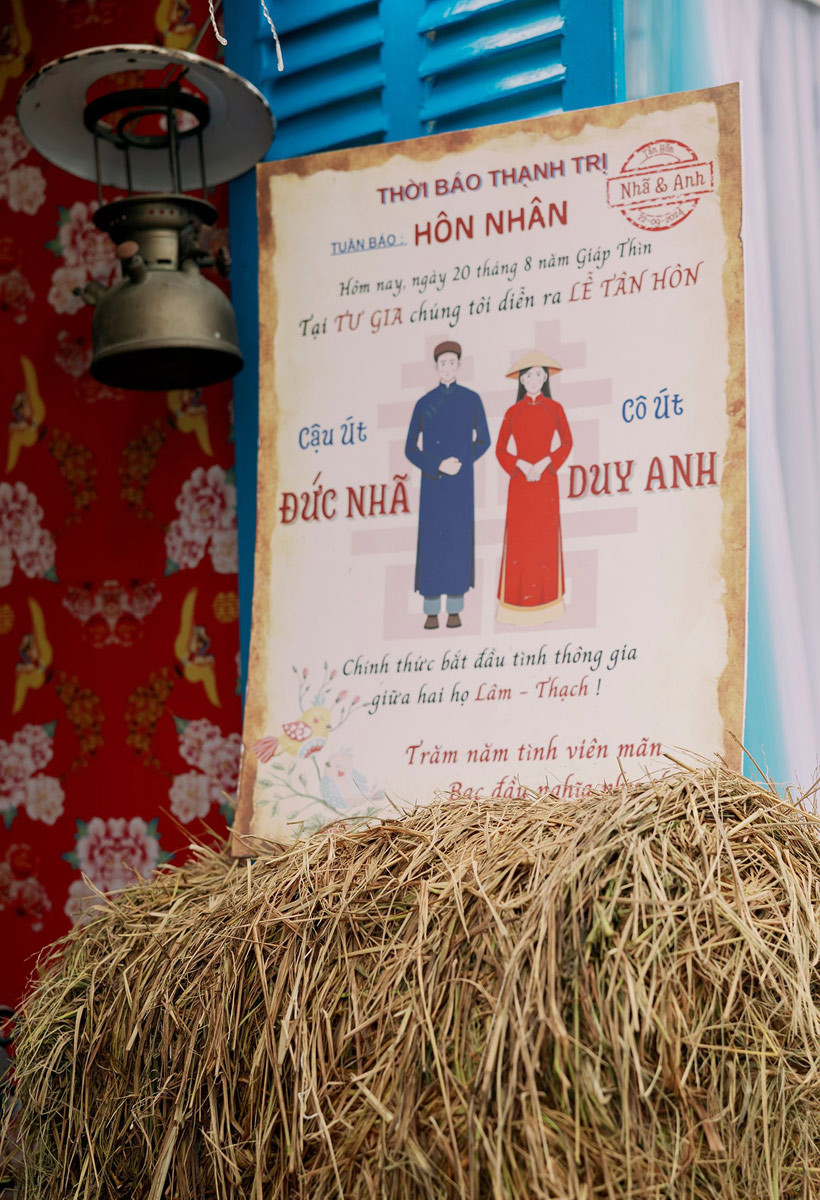 THỜI BÁO THẠNH TRỊ
TUẦN BÁO : HÔN NHÂN
TÂN HÔN
Nhã & Anh
22-09-2024
Hôm nay, ngày 20 tháng 8 năm Giáp Thìn
Tại TƯ GIA chúng tôi diễn ra LỄ TÂN HÔN
Cậu Út
Cô Út
ĐỨC NHÃ
DUY ANH
Chính thức bắt đầu tình thông gia
giữa hai họ Lâm - Thạch !
Trăm năm tình viên mãn
Bạc đầu nghĩa